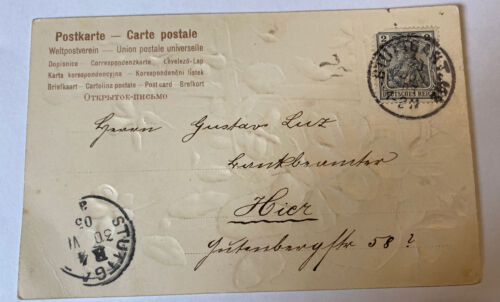 Postkarte — Carte postale
Weltpostverein — Union postale universelle
Dopisnice - Correspondenzkarte - Levelező-Lap
Karta korespondencyjna - Korespondenční lístek
Briefkaart - Cartolina postale - Post card - Brefkort
ОТКРЫТОЕ-ПИСЬМО
2 2
DEUTSCHES REICH
STUTTGART
Herrn Gustav Luz
Bankbeamter
Hier
Gutenbergstr 58?
STUTTGA
30 VI
05